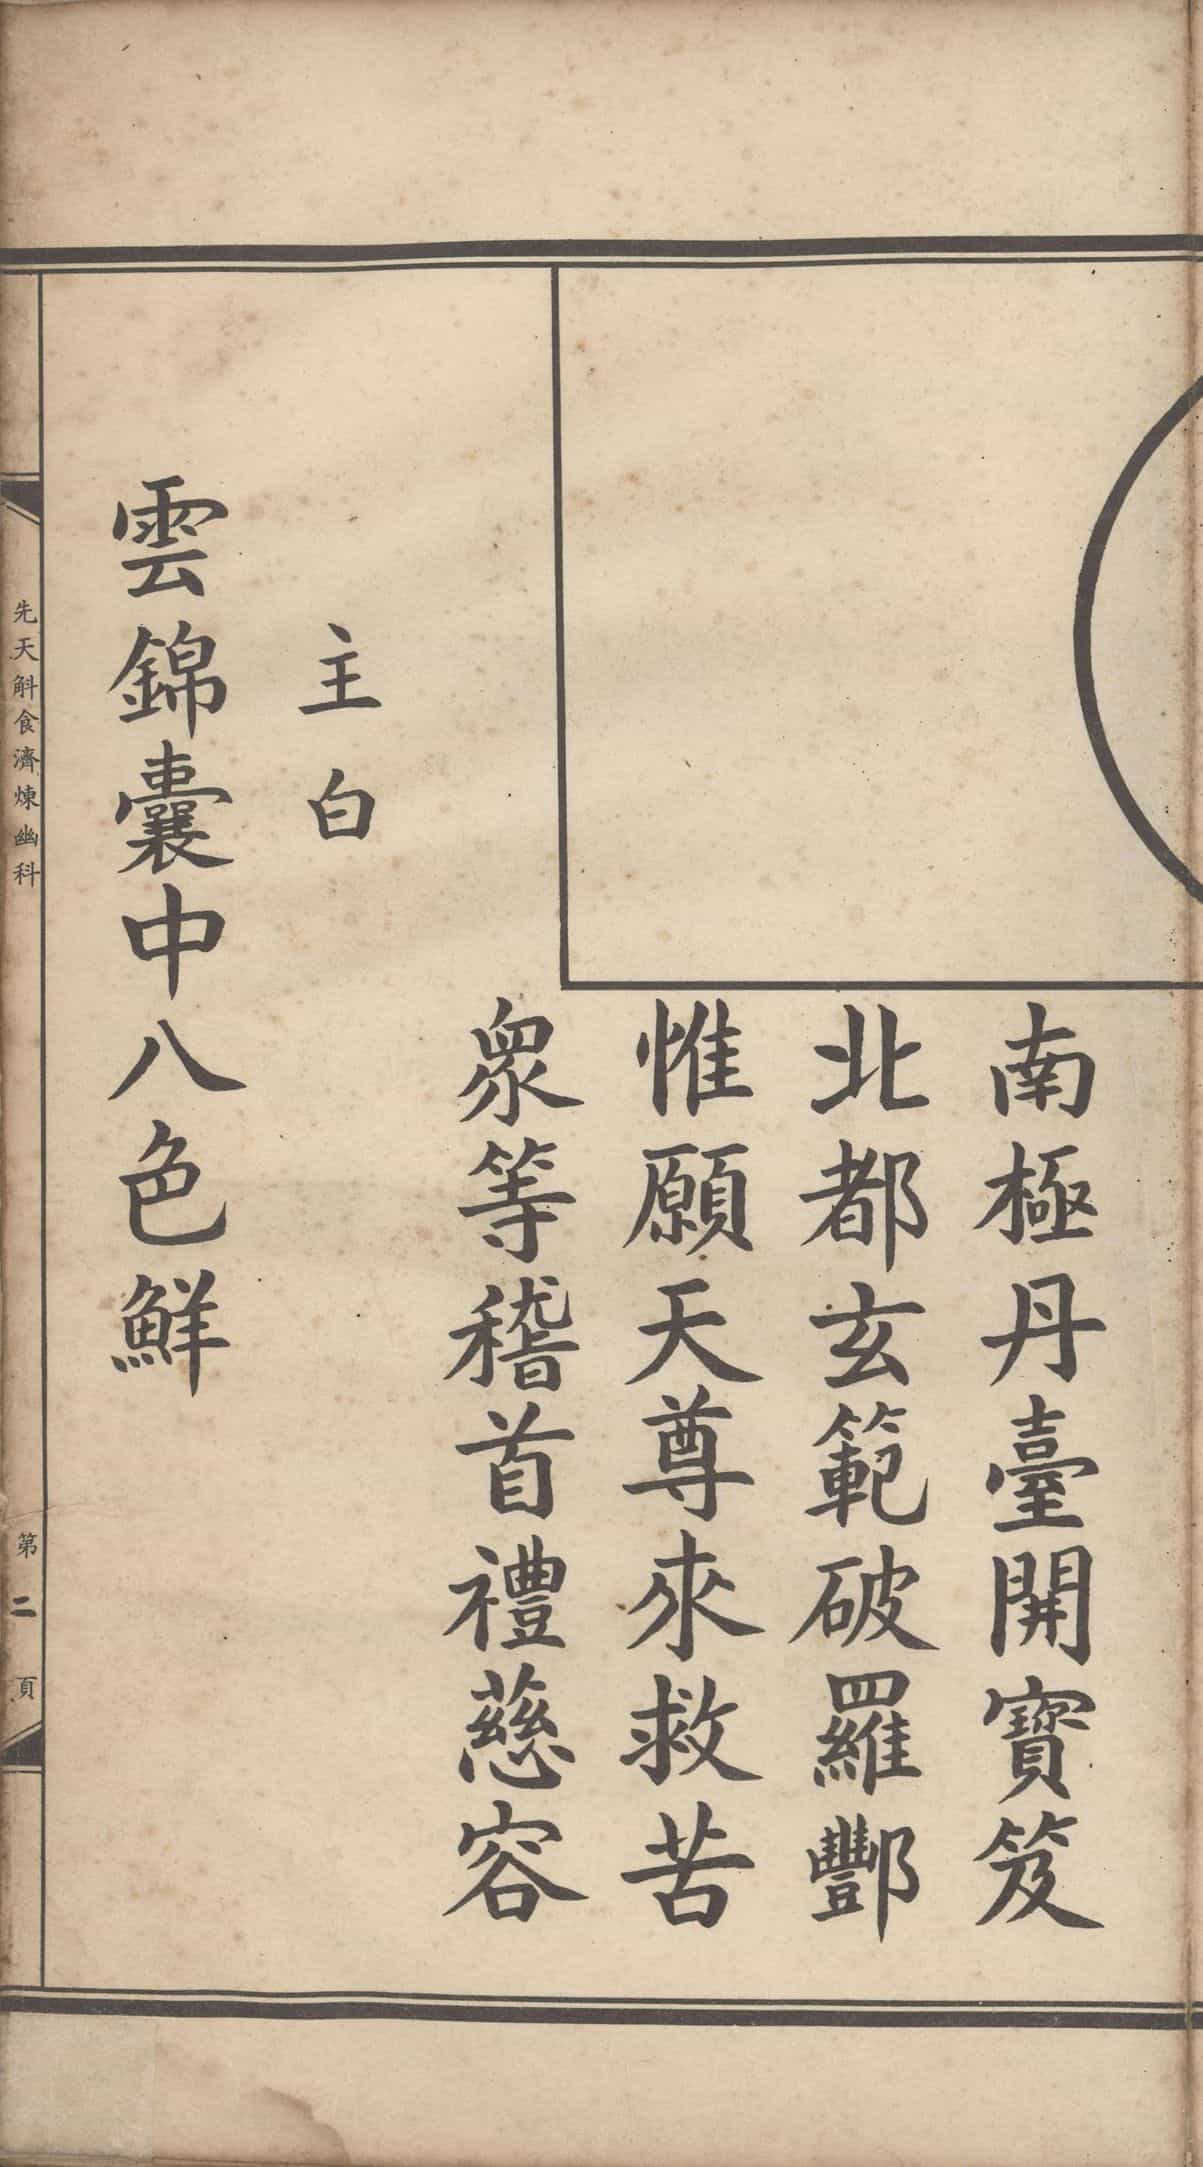 南極丹臺開寳笈
北都玄範破羅酆
惟願天尊來救苦
衆等稽首禮慈容
主白
雲錦囊中八色鮮
先天斛食濟煉幽科
第二頁